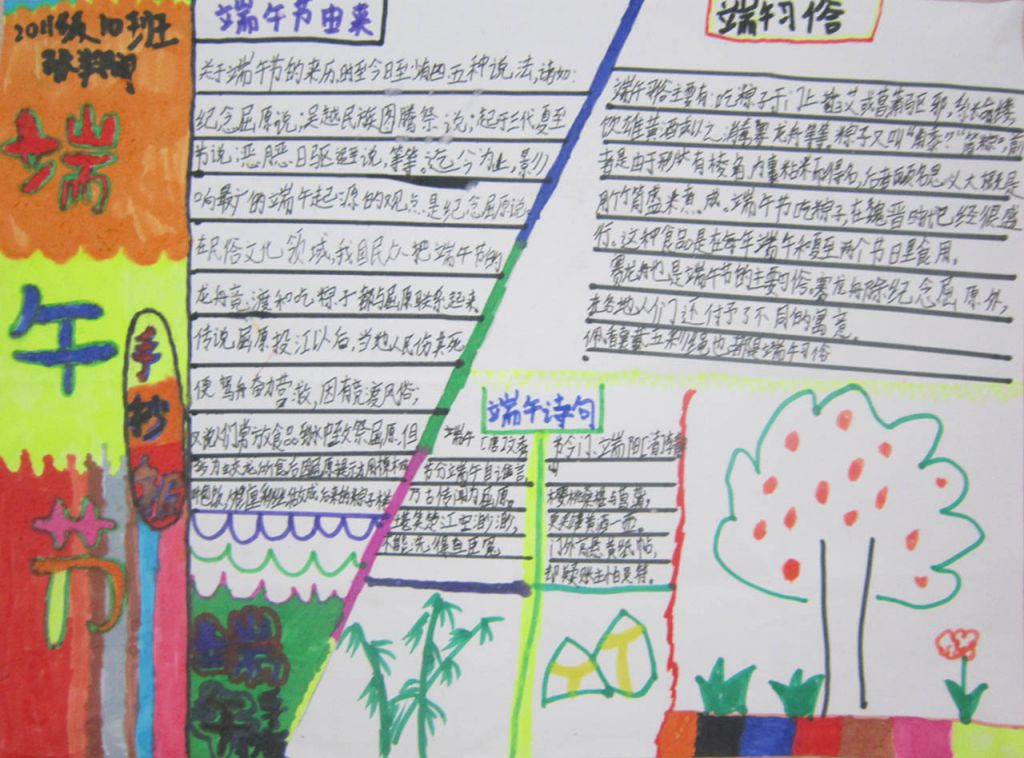 2011级10班
端
午
节
手抄报
端午节由来
关于端午节的来历,时至今日至少有四五种说法,诸如:
纪念屈原说;吴越民族图腾祭说;起于三代夏至
节说;恶月恶日驱避说,等等。迄今为止,影
响最广的端午起源的观点是纪念屈原说。
在民俗文化领域,我国民众把端午节的
龙舟竞渡和吃粽子都与屈原联系起来
传说屈原投江以后,当地人民伤其死
便驾舟奋力营救,因有竞渡风俗;
又说人们常放食品到水中致祭屈原,但
多为蛟龙所食,后因屈原提示
端午
端午习俗
端午习俗主要有:吃粽子于门上插艾或菖蒲驱邪,系长命缕,
饮雄黄酒或以之消毒,赛龙舟等等,粽子又叫"角黍""筒粽",前
者是由于形状有棱角、内裹粘米而得名,后者顾名思义大概是
用竹筒盛米煮成。端午节吃粽子,在魏晋时代已经很盛
行。这种食品是在每年端午和夏至两个节日里食用。
赛龙舟也是端午节的主要习俗,赛龙舟除纪念屈原外,
在各地人们还付予了不同的寓意。
佩香囊、五彩绳也都是端午习俗
端午诗句
端午 [唐]文秀
节分端午自谁言,
万古传闻为屈原。
堪笑楚江空渺渺,
不能洗得直臣冤
樱桃桑椹与菖蒲,
更买雄黄酒一壶。
门外高悬黄纸帖,
却疑账主怕灵符。